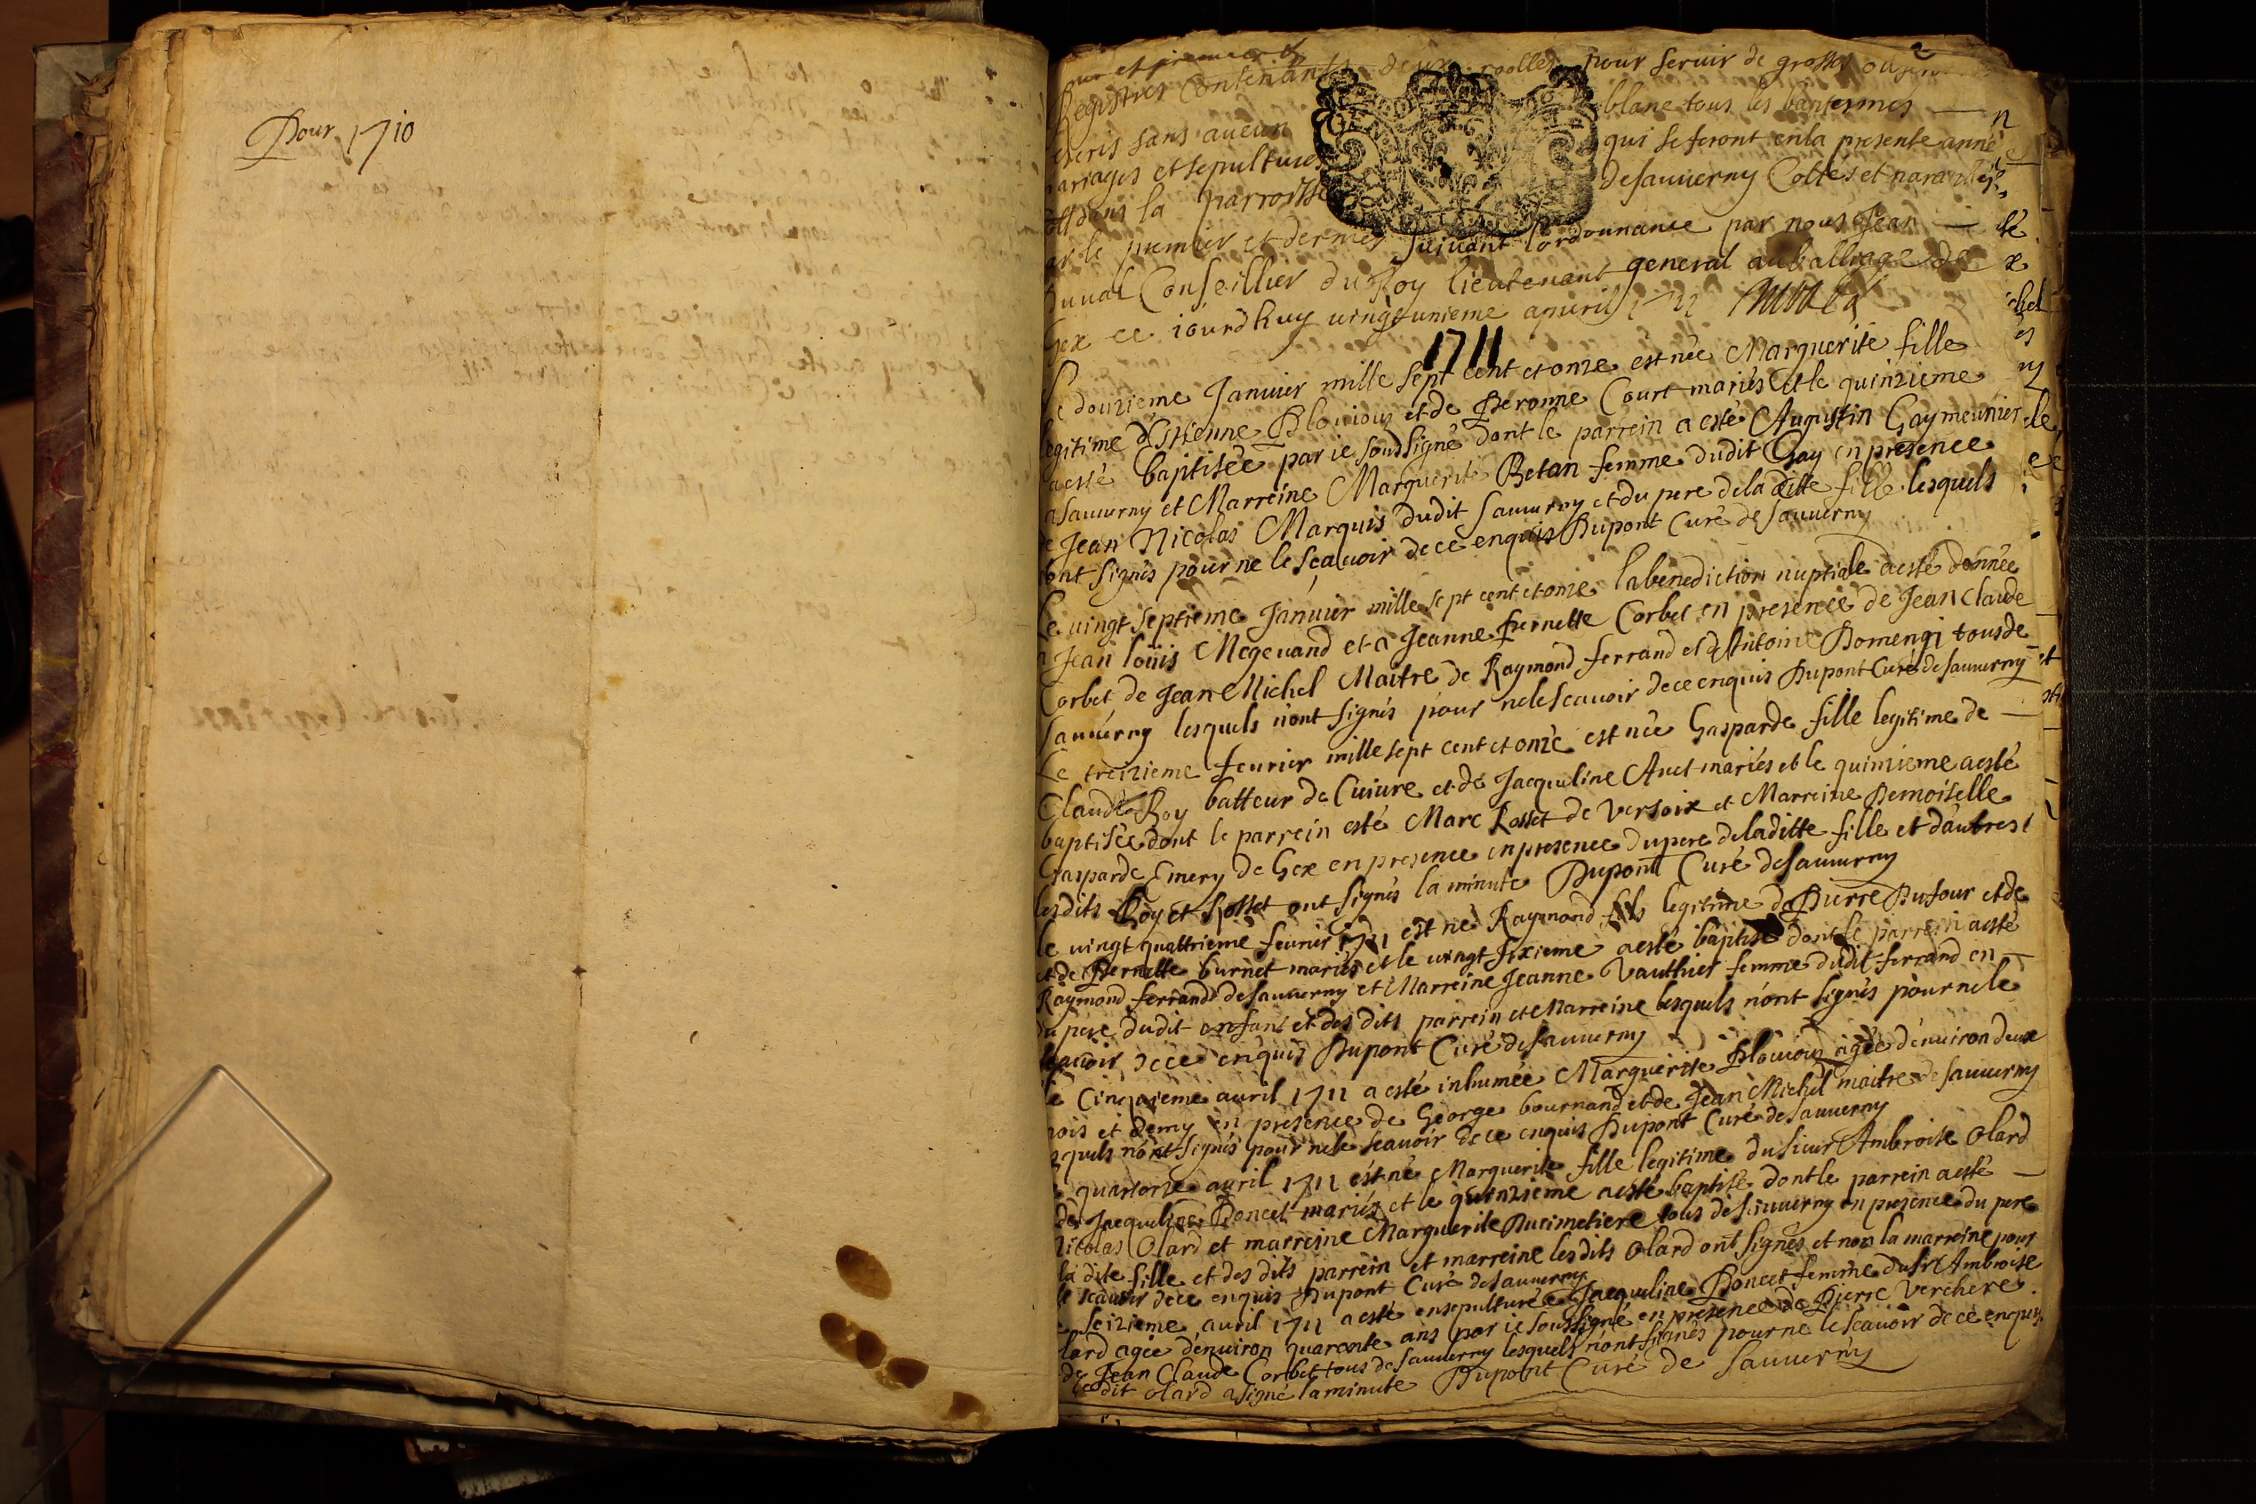 Pour 1710
2
Registres Contenants deux roolles pour seruir de grosse
escris sans aucun blanc tous les baptesmes
mariages et sepultures qui se feront en la presente année
dans la parroisse de sauuerny Cottes et paraphés
par le premier et dernier suiuant l'ordonnance par nous Jean
Duual Conseillier du Roy lieutenant general au balliage de
Gex ce iourdhuy uingt unieme apuril
1711
Le douzieme Januier mille sept cent et onze est née Marguerite fille
legitime d'Estienne Blouioux et de Peronne Court mariés et le quinzieme
a esté baptisée par ie soussigné dont le parrein a esté Augustin Gay meunier
a Sauuerny et Marreine Marguerite Betan femme dudit Gay en presence
de Jean Nicolas Marquis dudit sauuerny et du pere de la ditte fille lesquels
n'ont signés pour ne le sçauoir de ce enquis Dupont Curé de sauuerny
Le uingt septieme Januier mille sept cent et onze la benediction nuptiale a esté donnée
a Jean louis Megeuand et a Jeanne pernette Corbet en presence de Jean Claude
Corbet de Jean Michel Maitre de Raymond ferrand et d'Antoine Domengi tous de
Sauuerny lesquels n'ont signés pour ne le scauoir de ce enquis Dupont Curé de sauuerny
Le treizieme feurier mille sept cent et onze est née Gasparde fille legitime de
Claude Roy batteur de Cuiure et de Jacqueline Anet mariés et le quinzieme a esté
baptisée dont le parrein esté Marc Rosset de Versoix et Marreine Demoiselle
Gasparde Emery de Gex en presence en presence du pere de la ditte fille et d'autres
lesdits Roy et Rosset ont signés la minute Dupont Curé de sauuerny
le uingt quattrieme feurier 1711 est né Raymond fils legitime de Pierre Dufour et de
et de Pernette burnet mariés et le uingt sixieme a esté baptisé dont le parrein a esté
Raymond ferrand de sauuerny et Marreine Jeanne Vauthier femme dudit ferrand en
du pere dudit enfant et des dits parrein et Marreine lesquels n'ont signés pour ne le
scauoir de ce enquis Dupont Curé de sauuerny
le Cinquieme auril 1711 a esté inhumée Marguerite Blouioux agée d'enuiron deux
mois et demy en presence de George bournand et de Jean Michel maitre de sauuerny
lesquels n'ont signés pour ne le scauoir de ce enquis Dupont Curé de sauuerny
le quatorze auril 1711 est né Marguerite fille legitime du sieur Ambroise Olard
de Jacqueline Poncet mariés et le quinzieme a esté baptisé dont le parrein a esté
Nicolas Olard et marreine Marguerite Ducimetiere tous de sauuerny en presence du pere
la dite fille et des dits parrein et marreine lesdits Olard ont signés et non la marreine pour
le scauoir de ce enquis Dupont Curé de sauuerny
le seizieme auril 1711 a esté ensepulturée Jacqueline Poncet femme du sr Ambroise
Olard agée d'enuiron quarante ans par ie soussigné en presence de Pierre Verchere
de Jean Claude Corbet tous de sauuerny lesquels n'ont signés pour ne le scauoir de ce enquis
ledit Olard a signé la minute Dupont Curé de Sauuerny